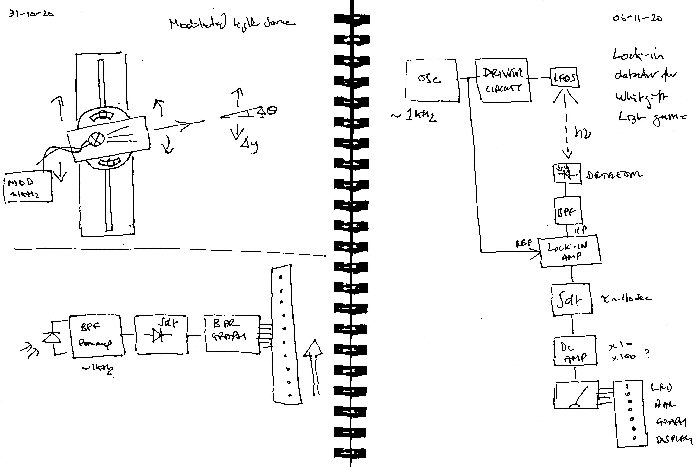 31-10-20
Modulated light source
Δθ
Δy
MOD
~1kHz
BPF
Preamp
~1kHz
∫dt
BAR
GRAPH
06-11-20
Lock-in
detector for
Light game
OSC
~1kHz
DRIVER
CIRCUIT
LEDS
DETECTOR
BPF
I/P
REF
LOCK-IN
AMP
∫dt
DC
AMP
x1-
x100 ?
LED
BAR
GRAPH
DISPLAY